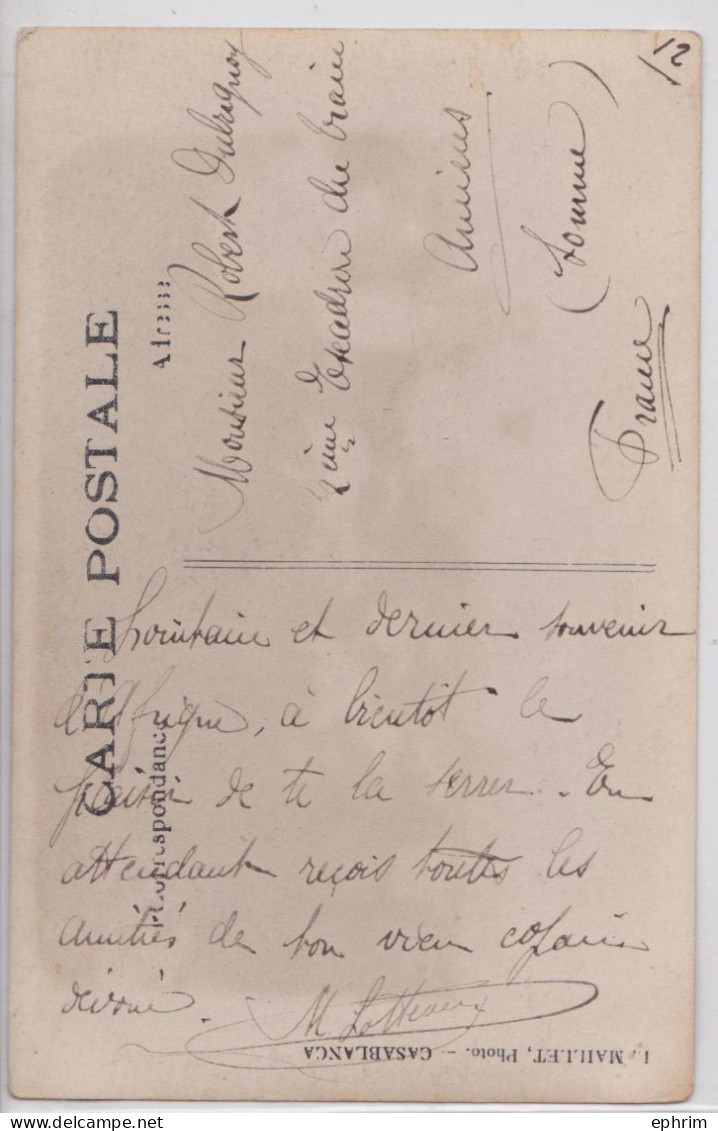 CARTE POSTALE
Correspondance
Adresse
Monsieur Robert
2ème Escadron du train
Amiens
(Somme)
France
Lointain et dernier souvenir
d'Afrique, à bientôt le
plaisir de te la serrer. En
attendant reçois toutes les
amitiés de ton vieux copain
dévoué.
M
L. MAILLET, Photo. — CASABLANCA
12
ephrim